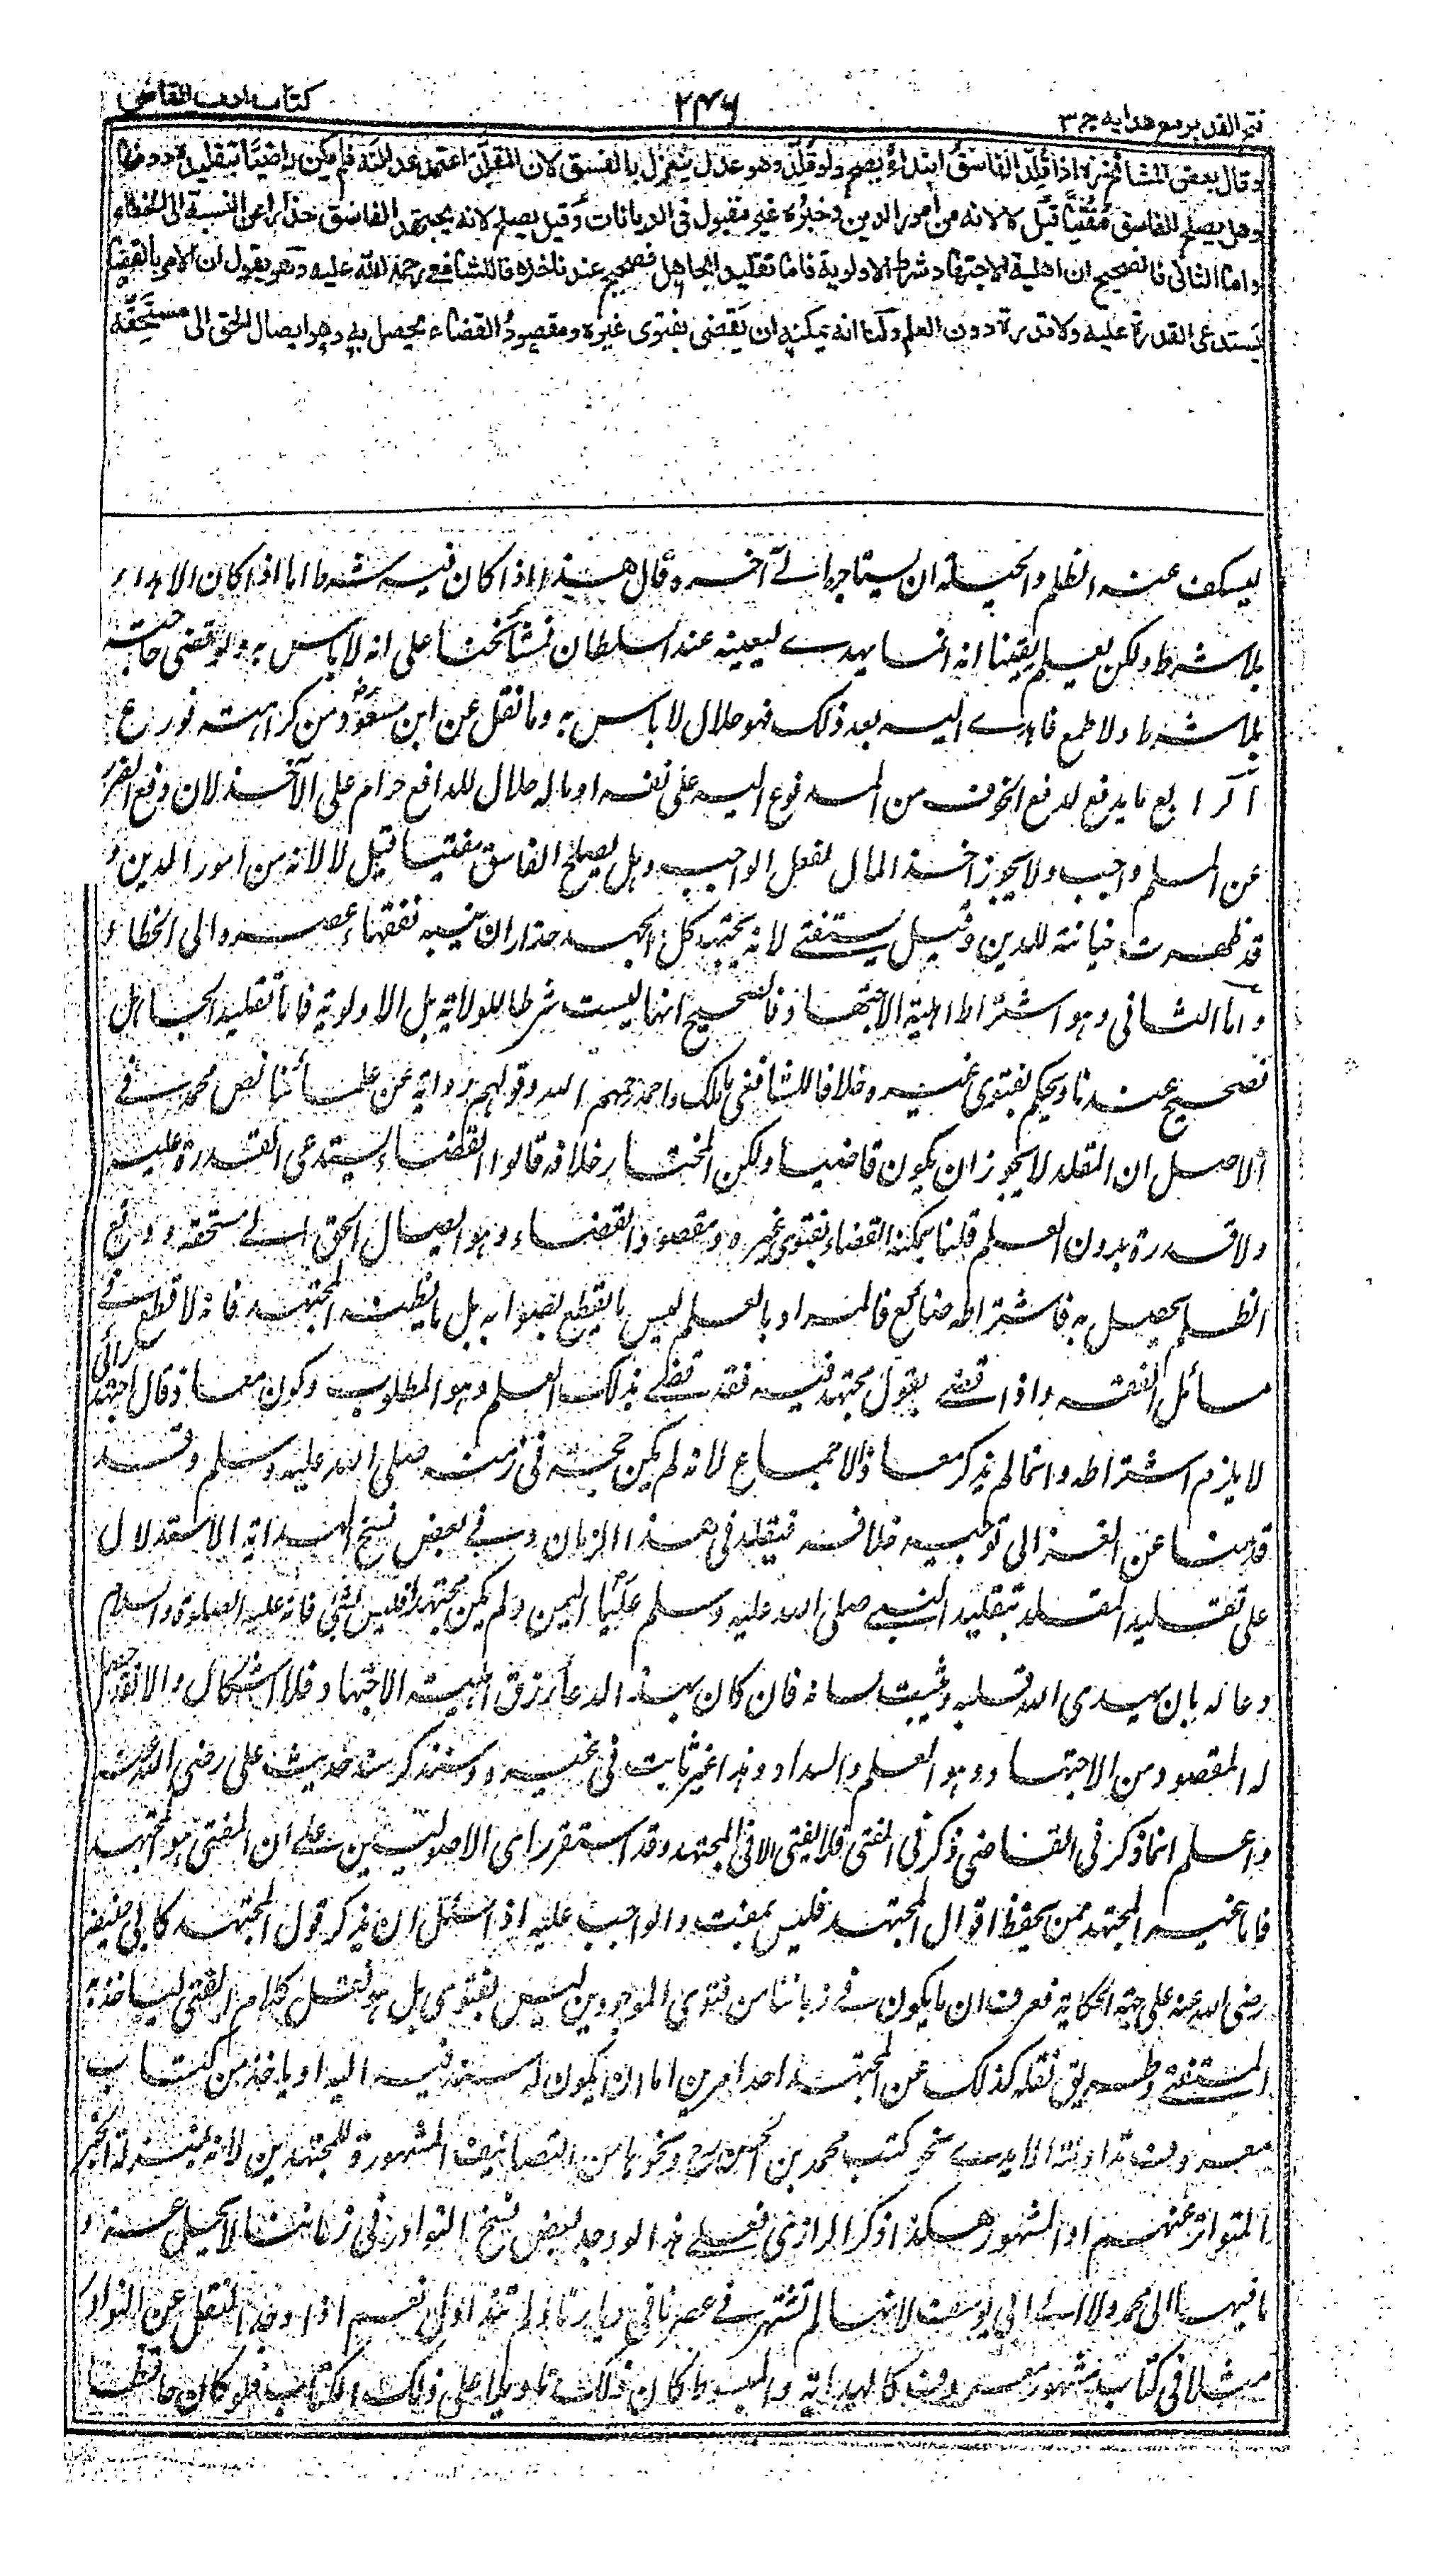 فتح القدير مع هدايه ج ٣
٢٤٦
كتاب ادب القاضي
وقال بعض المشائخ اذا قُلِّد الفاسق ابتداءً يصح ولو قُلِّد وهو عدل ينعزل بالفسق لان المقلِّد اعتمد عدالته فلم يكن راضيًا بتقليده دونها
وهل يصلح الفاسق مُفتيًا قيل لا لانه من امور الدين وخبره غير مقبول في الديانات وقيل يصلح لانه يجتهد الفاسق حذارا عن النسبة الى الخطاء
واما الثاني فالصحيح ان اهلية الاجتهاد شرط الاولوية فاما تقليد الجاهل فصحيح عندنا خلافا للشافعي رحمة الله عليه وهو يقول ان الامر بالقضاء
يستدعي القدرة عليه ولا قدرة دون العلم ولنا انه يمكنه ان يقضي بفتوى غيره ومقصود القضاء يحصل به وهو ايصال الحق الى مستحقه
ليسكف عنه الظلم والحيلة ان يستاجره الے آخره وقال هذا اذا كان فيه شرط اما اذا كان الاهداء
بلا شرط ولكن يعلم يقينا انه انما يهدے ليعينه عند السلطان فمشائخنا على انه لا باس به ولو قضى حاجته
بلا شرط ولا طمع فاهدے اليه بعد ذلك فهو حلال لا باس به وما نقل عن ابن مسعود من كراهته فورع
الرابع ما يدفع لدفع الخوف من المدفوع اليه على نفسه او ماله حلال للدافع حرام على الآخذ لان دفع الضرر
عن المسلم واجب ولا يجوز اخذ المال لفعل الواجب وهل يصلح الفاسق مفتيا قيل لا لانه من امور الدين و
قد ظهرت خيانته للدين وقيل يستفتے لانه يجتهد كل الجهد حذار ان ينسبه فقهاء عصره الى الخطاء
واما الثاني وهو اشتراط اهلية الاجتهاد فالصحيح انها ليست شرطا للولاية بل الاولوية فاما تقليد الجاهل
فصحيح عندنا ويحكم بفتوى غيره خلافا للشافعي مالك واحمد رحمهم الله وقولهم رواية عن علمائنا نص محمد فے
الاصل ان المقلد لا يجوز ان يكون قاضيا ولكن المختار خلافه قالوا القضاء يستدعى القدرة عليه
ولا قدرة بدون العلم قلنا يمكنه القضاء بفتوى غيره ومقصود القضاء وهو ايصال الحق الے مستحقه ودفع
الظلم يحصل به فاشتراطه ضائع فالمراد بالعلم ليس ما يقطع بصوابه بل ما يظنه المجتهد فانه لا قطع فے
مسائل الفقه واذا قضے بقول مجتهد فيه فقد قضے بذلك العلم وهو المطلوب وكون معاذ قال اجتهد برائى
لا يلزم اشتراطه وانما لم يذكر معاذ الاجماع لانه لم يكن حجة في زمنه صلى الله عليه وسلم وقد
قدمنا عن الغزالى توجيه خلافه فيقلد فى هذا الزمان وفے بعض نسخ الهداية الاستدلال
على تقليد المقلد بتقليد النبے صلى الله عليه وسلم عليًّا اليمن ولم يكن مجتهدا فليس بشئ فانه عليه الصلوة والسلام
دعا له بان يهدى الله قلبه ويثبت لسانه فان كان بهذا الدعاء رزق اهلية الاجتهاد فلا اشكال والا فقد حصل
له المقصود من الاجتهاد وهو العلم والسداد وهذا غير ثابت فى غيره وسنذكر سند حديث على رضى الله عنه
واعلم انما ذكر فى القاضى ذكر فى المفتى فلا يفتى الا المجتهد وقد استقر راى الاصوليين علے ان المفتى هو المجتهد
فاما غير المجتهد ممن يحفظ اقوال المجتهد فليس بمفت والواجب عليه اذا سئل ان يذكر قول المجتهد كابى حنيفة
رضى الله عنه على جهة الحكاية فعرف ان ما يكون فے زماننا من فتوى الموجودين ليس بفتوى بل هو نقل كلام المفتى لياخذه
المستفتے وطريق نقله كذلك عن المجتهد احد امرين اما ان يكون له سند فيه اليه او ياخذ من كتاب
معروف تداولته الايدے نحو كتب محمد بن الحسن رح ونحوها من التصانيف المشهورة للمجتهدين لانه بمنزلة الخبر
المتواتر عنهم او المشهور هكذا ذكر الرازى فعلے هذا لو وجد بعض نسخ النوادر فى زماننا لا يحل عزو
ما فيها الى محمد ولا الے ابى يوسف لانها لم تشتهر فے عصرنا فى ديارنا ولم تتداول نعم اذا وجد النقل عن النوادر
مثلا فى كتاب مشهور معروف كالهداية والمبسوط كان ذلك تعويلا على ذلك الكتاب فلو كان حافظا